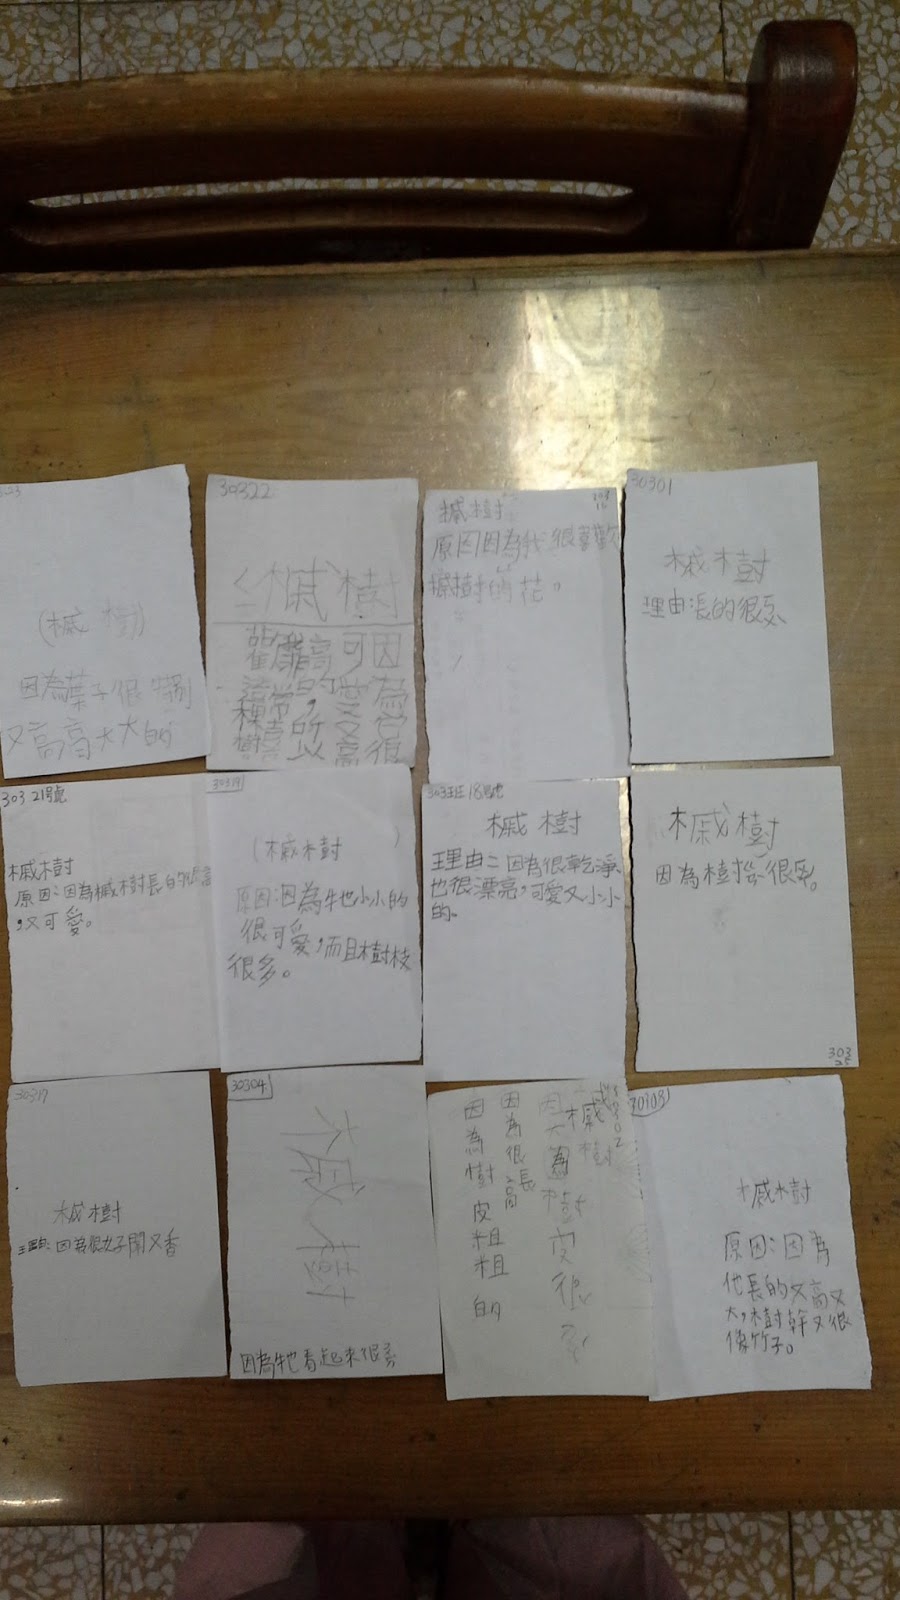 (槭樹)
因為葉子很特別
又高高大大的
30322
槭樹
因為它很
可愛又高
高的,所以
我非常喜
303
槭樹
原因因為我很喜歡
槭樹的花。
30301
槭樹
理由長的很
303 21號
槭樹
原因:因為槭樹長的很高
,又可愛。
30319
(槭樹)
原因:因為牠小小的
很可愛,而且樹枝
很多。
303班18號
槭樹
理由:因為很乾淨
也很漂亮,可愛又小小
的。
槭樹
因為樹
303
25
30317
槭樹
理由:因為很好聞又香
30304
槭樹
因為牠看起來很
槭樹
因為樹皮很
因為很長高
因為樹皮粗粗的
30308
槭樹
原因:因為
他長的又高又
大,樹幹又很
像竹子。